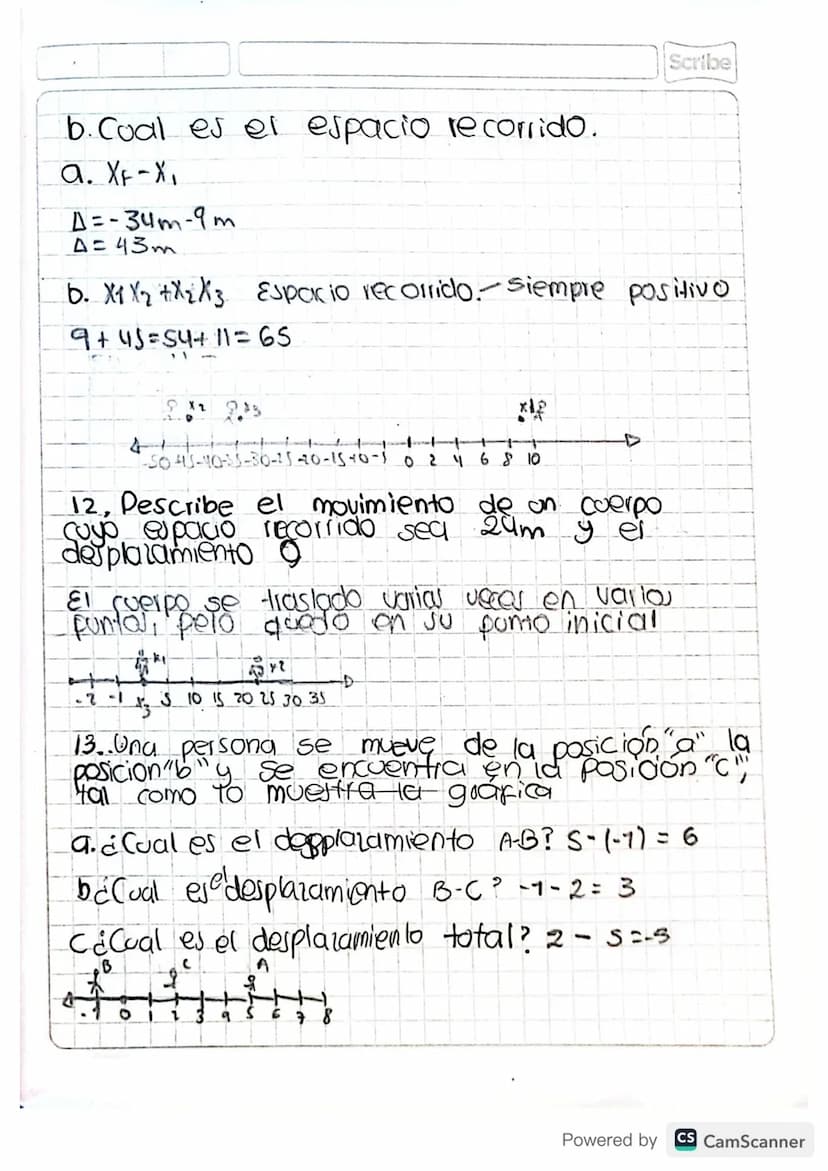 Scribe
b. Cual es el espacio recorrido.
a. XF-X1
Δ=-34m-9m
Δ= 43m
b. X1X2+X2X3 Espacio recorrido.-Siempre positivo
9+45=54+11=65
x2 x3 x1
-50-45-40-35-30-25-20-15-10-5 0 2 4 6 8 10
12, Describe el movimiento de un cuerpo
cuyo espacio recorrido sea 24m y el
desplazamiento 0
El cuerpo se traslado varias veces en varios
puntos, pero quedo en su punto inicial
x1 x2
-2 -1 x3 5 10 15 20 25 30 35
13. Una persona se mueve de la posición "a" la
posicion "b" y se encuentra en la posición "c",
tal como lo muestra la gráfica
a.¿Cual es el desplazamiento A-B? 5-(-1) = 6
b¿Cual es el desplazamiento B-C? -1-2= 3
C¿Cual es el desplazamiento total? 2 - 5=-3
B C A
-1 0 1 2 3 4 5 6 7 8
Powered by CS CamScanner